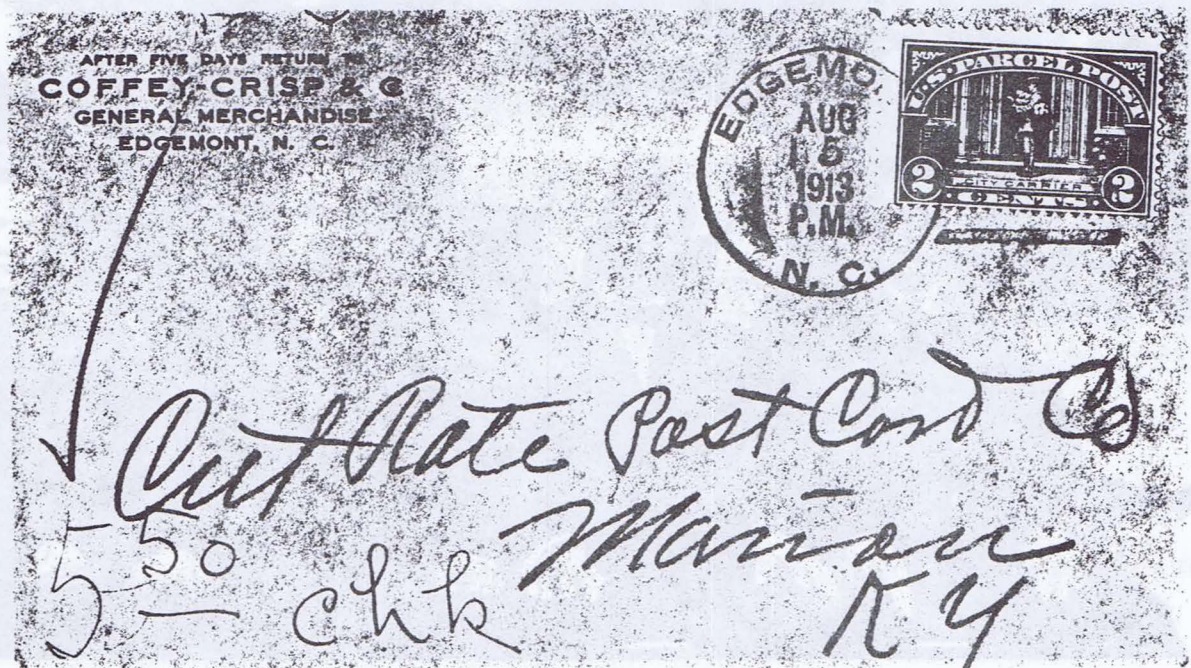 AFTER FIVE DAYS RETURN TO
COFFEY-CRISP & C
GENERAL MERCHANDISE
EDGEMONT, N. C.
EDGEMO
AUG
15
1913
P.M.
N. C.
U.S. PARCEL POST
2 CITY CARRIER 2
CENTS
Cut Rate Post Card Co
Marion
KY
5 50
chk